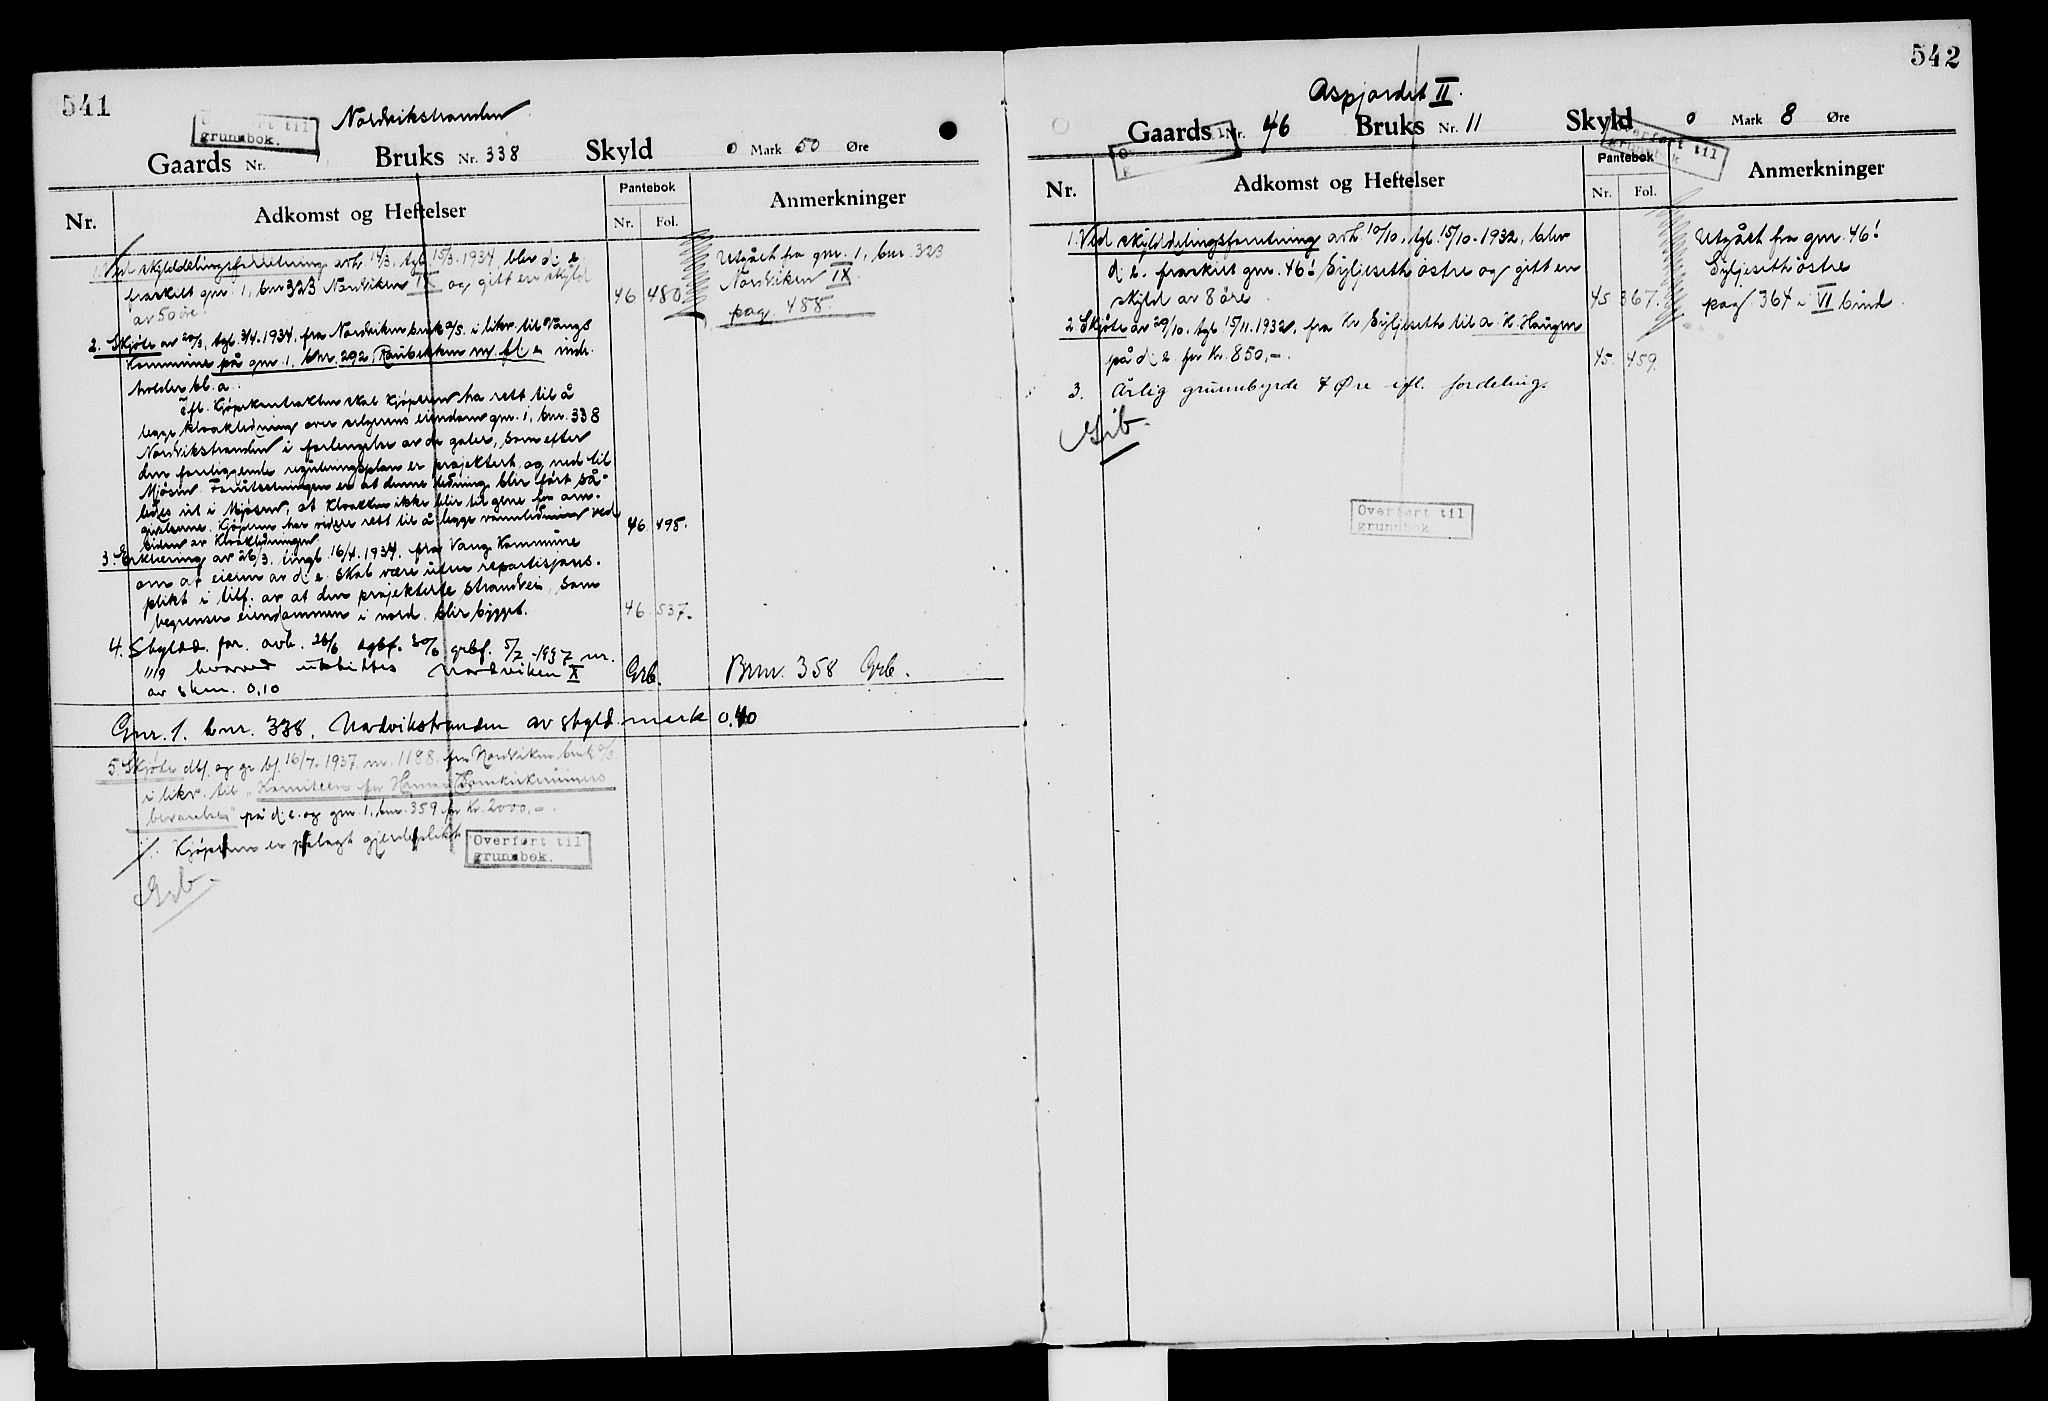 541
Overført til
grunnbok.
Nordvikstranden
Gaards Nr. 1 Bruks Nr. 338 Skyld 0 Mark 50 Øre
Nr. Adkomst og Heftelser Pantebok Nr. Fol. Anmerkninger
1. Ved skylddelingsforretning avh. 14/3, tgl. 15/3. 1934 blev d. e.
fraskilt gnr. 1, bnr 323 Nordviken IX og gitt en skyld
av 50 øre. 46 480.
Utgått fra gnr. 1, bnr. 323
Nordviken IX.
pag. 488.
2. Skjøte av 20/3, tgl. 3/4. 1934, fra Nordviken bruk a/s. i likv. til Vangs
kommune på gnr. 1, bnr. 292, Raubekken m. fl. e inde-
holder bl. a.:
Ifl. kjøpekontrakten skal kjøperen ha rett til å
legge kloakledning over selgerens eiendom gnr. 1, bnr. 338
Nordvikstranden i forlengelse av de gater, som efter
den foreliggende reguleringsplan er projektert, og ned til
Mjøsen. Forutsetningen er at denne ledning blir ført så-
ledes ut i Mjøsen, at kloakken ikke blir til gene for om-
givelserne. Kjøperen har videre rett til å legge vannledninger ved
siden av kloakledningen. 46 498.
3. Erklæring av 26/3. tingl. 16/4. 1934. fra Vang kommune
om at eieren av d. e. skal være uten repartisjons-
plikt i tilf. av at den projekterte strandvei, som
begrenser eiendommen i nord, blir bygget. 46 537.
4. Skyldd. for. avh. 26/6 dgbf. 30/6 grbf. 5/7 - 1937 nr.
1119 hvorved utskiltes Nordviken X
av skm. 0,10 Grb. Bnr. 358 Grb.
Gnr. 1. bnr. 338. Nordvikstranden av skyldmark 0,40
5. Skjøte dbf. og gr. bf. 16/7. 1937. nr. 1188. fra Nordviken bruk a/s.
i likv. til "Komiteen for Hamar Domkirkeruiners
bevarelse" på d. e. og gnr. 1, bnr. 359 for Kr. 2000,-.
Kjøperen er pålagt gjerdeplikt
Overført til
grunnbok.
Grb.
542
Aspjordet II.
Gaards Nr. 46 Bruks Nr. 11 Skyld 0 Mark 8 Øre
Overført til
Nr. Adkomst og Heftelser Pantebok Nr. Fol. Anmerkninger
1. Ved skylddelingsforretning avh. 10/10, tgl. 15/10. 1932, blev
d. e. fraskilt gnr. 46! Syljeseth østre og gitt en
skyld av 8 øre. 45 367.
Utgått fra gnr. 46!
Syljeseth østre
pag 364 i VI bind
2. Skjøte av 29/10. tgl. 15/11. 1932, fra Kr Syljeseth til A. K. Haugen
på d. e. for Kr. 850,-. 45. 459.
3. Årlig grunnbyrde 7 Øre ifl. fordeling.
Grb.
Overført til
grunnbok